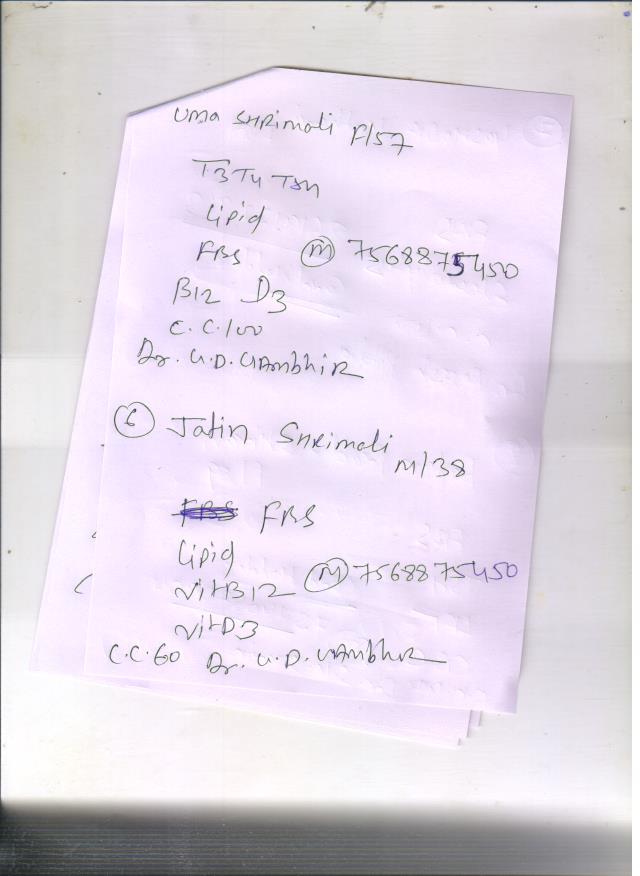 Uma Shrimali F/57
T3 T4 TSH
Lipid
FBS (M) 7568875450
B12 D3
C.C. 100
Dr. G.D. Gambhir
(6) Jatin Shrimali
M/38
FBS FBS
Lipid
Vit B12 (M) 7568875450
Vit D3
C.C. 60 Dr. G.D. Gambhir